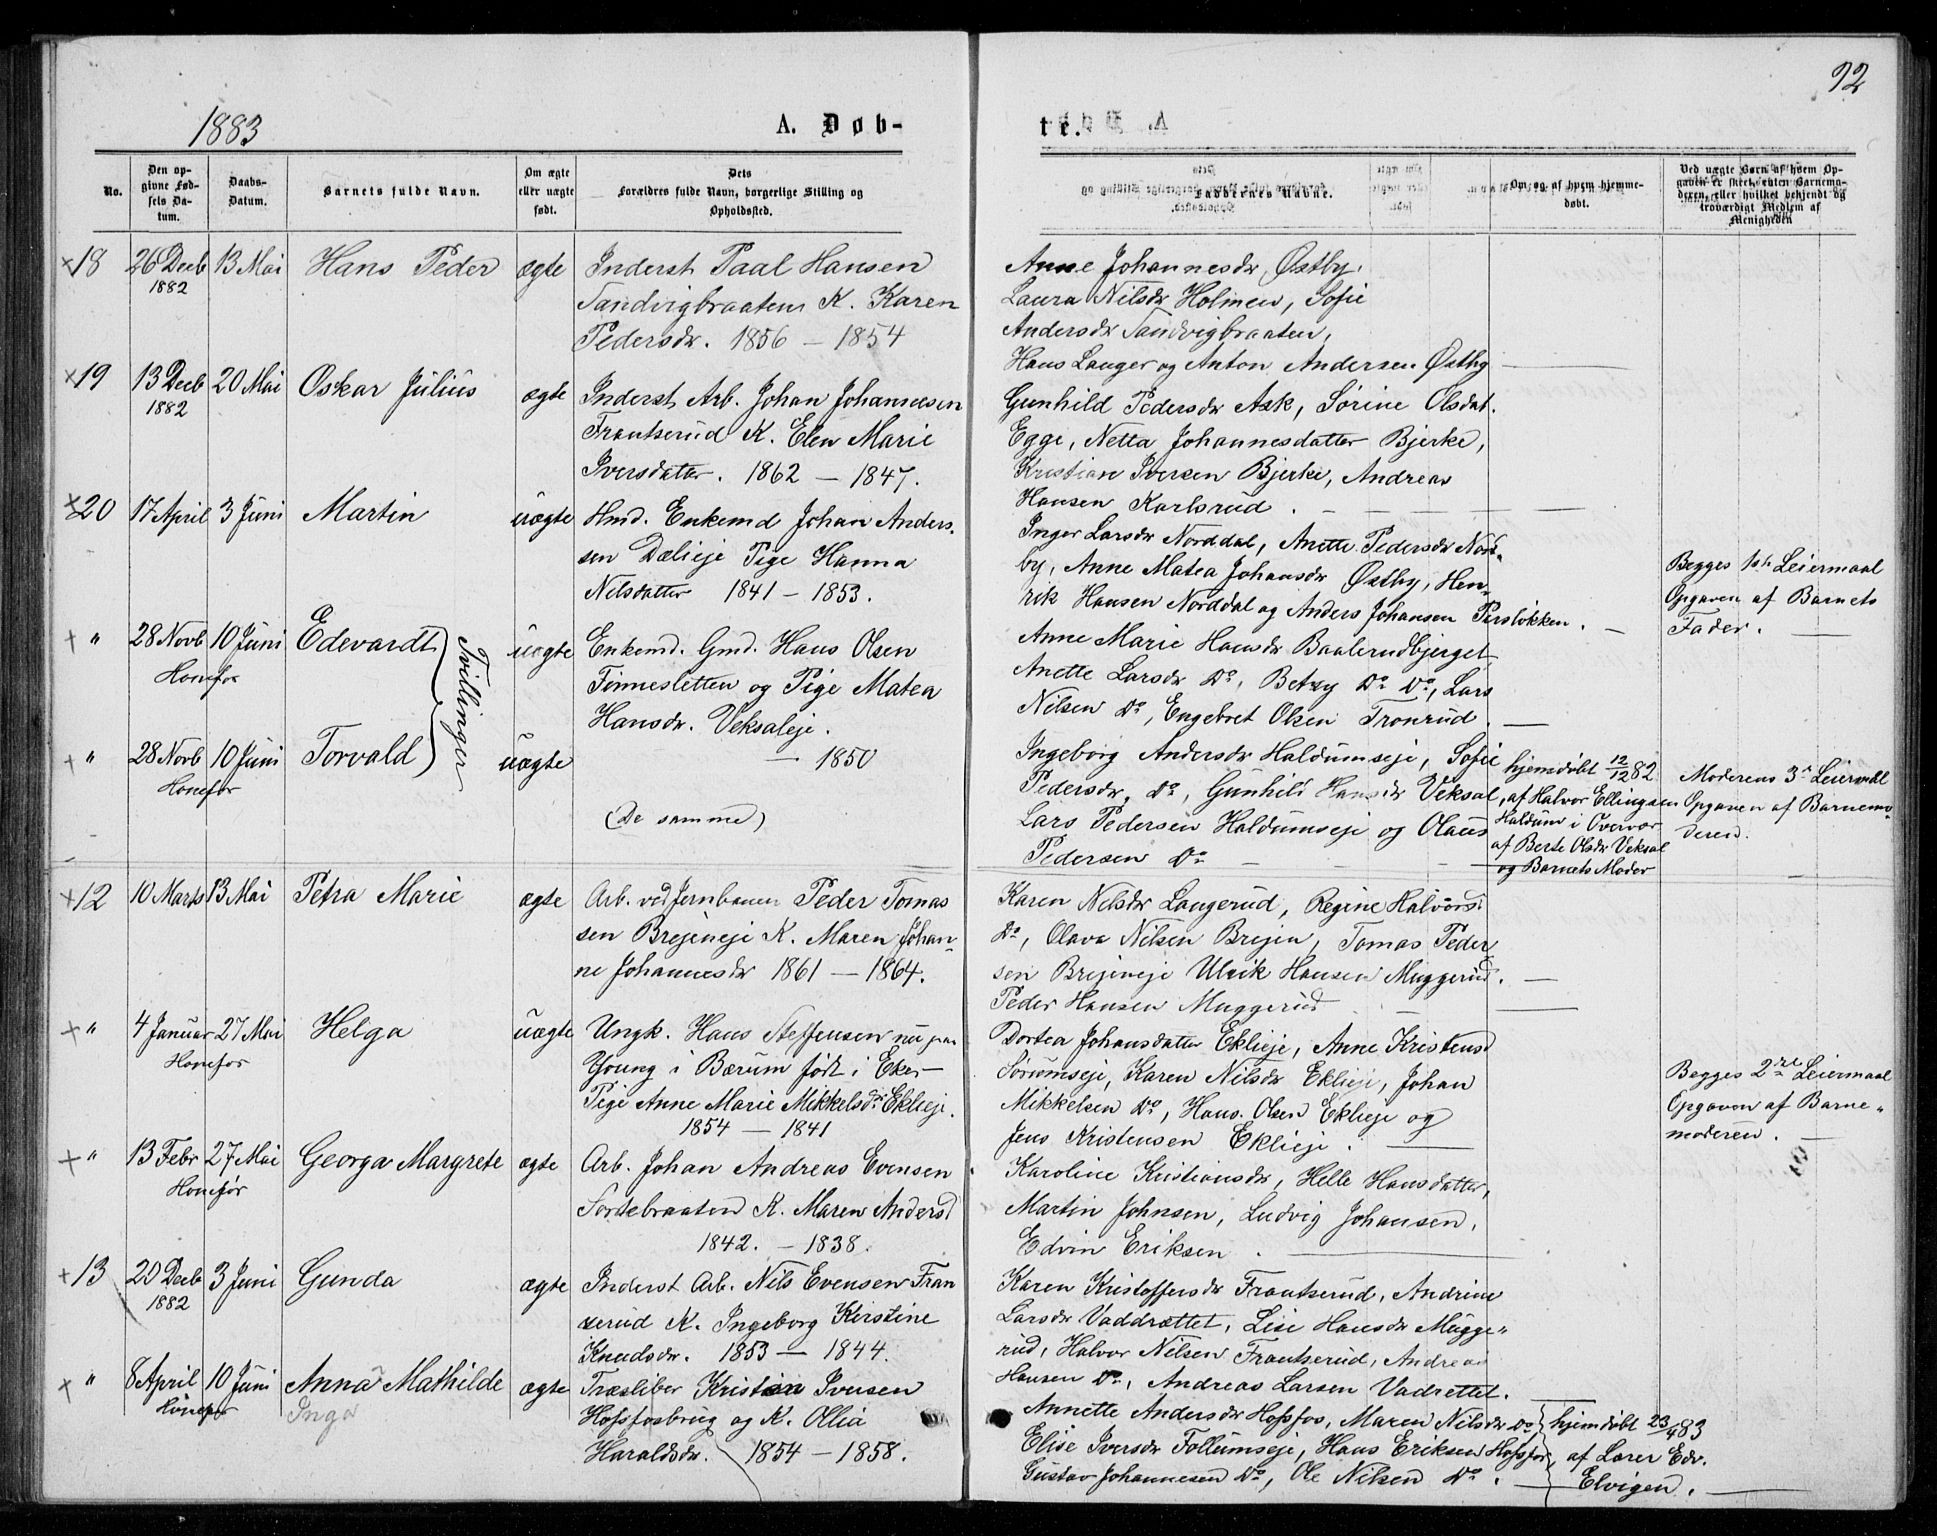 92
1883
A. Døb-
te.
No.
Den op-
givne Fød-
sels Da-
tum.
Daabs-
Datum.
Barnets fulde Navn.
Om ægte
eller uægte
født.
Dets
Forældres fulde Navn, borgerlige Stilling og
Opholdssted.
Faddernes Navne.
Om og af hvem hjemme-
døbt.
Ved uægte Børn af hvem Op-
gaven er skeet, enten Barnemo-
deren, eller hvilket bekjendt og
troværdigt Medlem af
Menigheden
18 26 Decb 13 Mai Hans Peder ægte Inderst Paal Hansen
1882
Sandvigbraaten K. Karen
Pedersdr. 1856 – 1854
Anne Johannesdr Østby,
Laura Nilsdr Holmen, Sofie
Andersdr Sandvigbraaten,
Hans Langer og Anton Andersen Østby
19 13 Decb 20 Mai Oskar Julius ægte Inderst Arb. Johan Johannesen
1882
Frantserud K. Elen Marie
Iversdatter. 1862 – 1847.
Gunhild Pedersdr Ask, Sørine Olsdat.
Egge, Netta Johannesdatter Bjerke,
Kristian Iversen Bjerke, Andreas
Hansen Karlsrud.
20 17 April 3 Juni Martin uægte Hmd. Enkemd Johan Anders-
sen Dælieje Pige Hanna
Nilsdatter 1841 – 1853.
Inger Larsdr Norddal, Anette Pedersdr Nord-
by, Anne Matea Johansdr Østby, Hen-
rik Hansen Norddal og Anders Johansen Persløkken.
Begges 1st Leiermaal
Opgaven af Barnets
Fader.
" 28 Novb 10 Juni Edevardt uægte Enkemd. Gmd. Hans Olsen
Hønefos
Tvillinger
Finnesletten og Pige Matea
Hansdr. Veksaleje.
Anne Marie Hansdr Baalerudbjerget
Anette Larsdr Do, Betzy Do Do, Lars
Nilsen Do, Engebret Olsen Tronrud.
" 28 Novb 10 Juni Torvald uægte – 1850
Hønefos
(De samme)
Ingeborg Andersdr Haldumseje, Sofie
Pedersdr, Do, Gunhild Hansdr Veksal,
Lars Pedersen Haldumseje og Olaus
Pedersen Do
hjemdøbt 12/12 82
af Halvor Ellingsen
Haldum i Overvær
af Berte Olsdr Veksal
og Barnets Moder
Moderens 3die Leiermaal
Opgaven af Barnemo-
deren.
12 10 Marts 13 Mai Petra Marie ægte Arb. ved Jernbanen Peder Tomas
sen Brejeneje K. Maren Johan-
ne Johannesdr 1861 – 1864.
Karen Nilsdr Langerud, Regine Halvors.
Do, Olava Nilsen Brejen, Tomas Peder
sen Brejeneje Ulrik Hansen Muggerud.
Peder Hansen Muggerud
" 4 Januar 27 Mai Helga uægte Ungk. Hans Steffensen nu paa
Hønefos
Young i Bærum født i Eker –
Pige Anne Marie Mikkelsdr Eklieje.
1854 – 1841
Dortea Johansdatter Eklieje, Anne Kristensd
Sørumseje, Karen Nilsdr Eklieje, Johan
Mikkelsen Do, Hans Olsen Eklieje og
Jens Kristensen Eklieje.
Begges 2det Leiermaal
Opgaven af Barne-
moderen.
" 13 Febr 27 Mai Georga Margrete ægte Arb. Johan Andreas Evensen
Hønefos
Sortebraaten K. Maren Andersd
1842. – 1838.
Karoline Kristiansdr, Helle Hansdatter,
Martin Johnsen, Ludvig Johansen,
Edvin Eriksen.
13 20 Decb 3 Juni Gunda ægte Inderst Arb. Nils Evensen Fran
1882
serud K. Ingeborg Kirstine
Knudsdr. 1853 – 1844.
Karen Kristoffersdr Frantserud, Andrine
Larsdr Vaddrættet, Lise Hansdr Mugge-
rud, Halvor Nilsen Frantserud, Andreas
Hansen Do, Andreas Larsen Vadrettet.
" 8 April 10 Juni Anna Mathilde ægte Træsliber Kristian Iversen
Hønefos Inga
Hofsfosbrug og K. Ollia
Haraldsdr. 1854 – 1858.
Annette Andersdr Hofsfos, Maren Nilsdr Do
Elise Iversdr Follumseje, Hans Eriksen Hofsfos,
Gustav Johannesen Do, Ole Nilsen Do.
hjemdøbt 23/4 83
af Lærer Edv.
Elvigen.